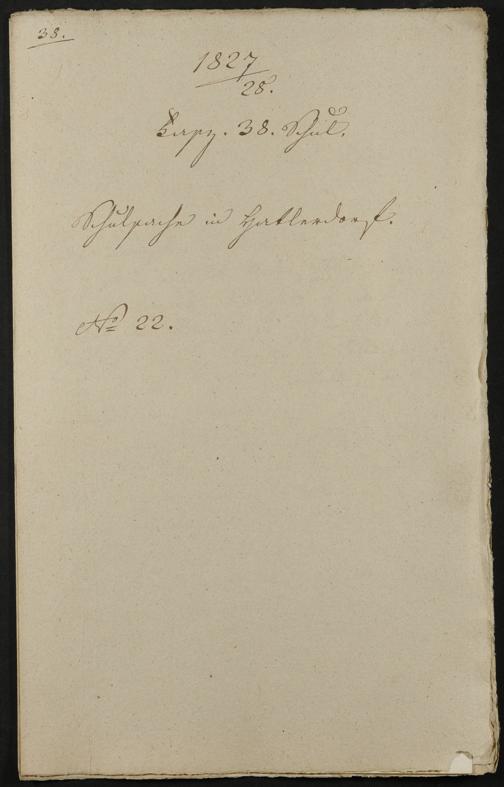 38.
1827
28.
Fasz. 38. Schul.
Schulsache in Hatlerdorf.
No 22.